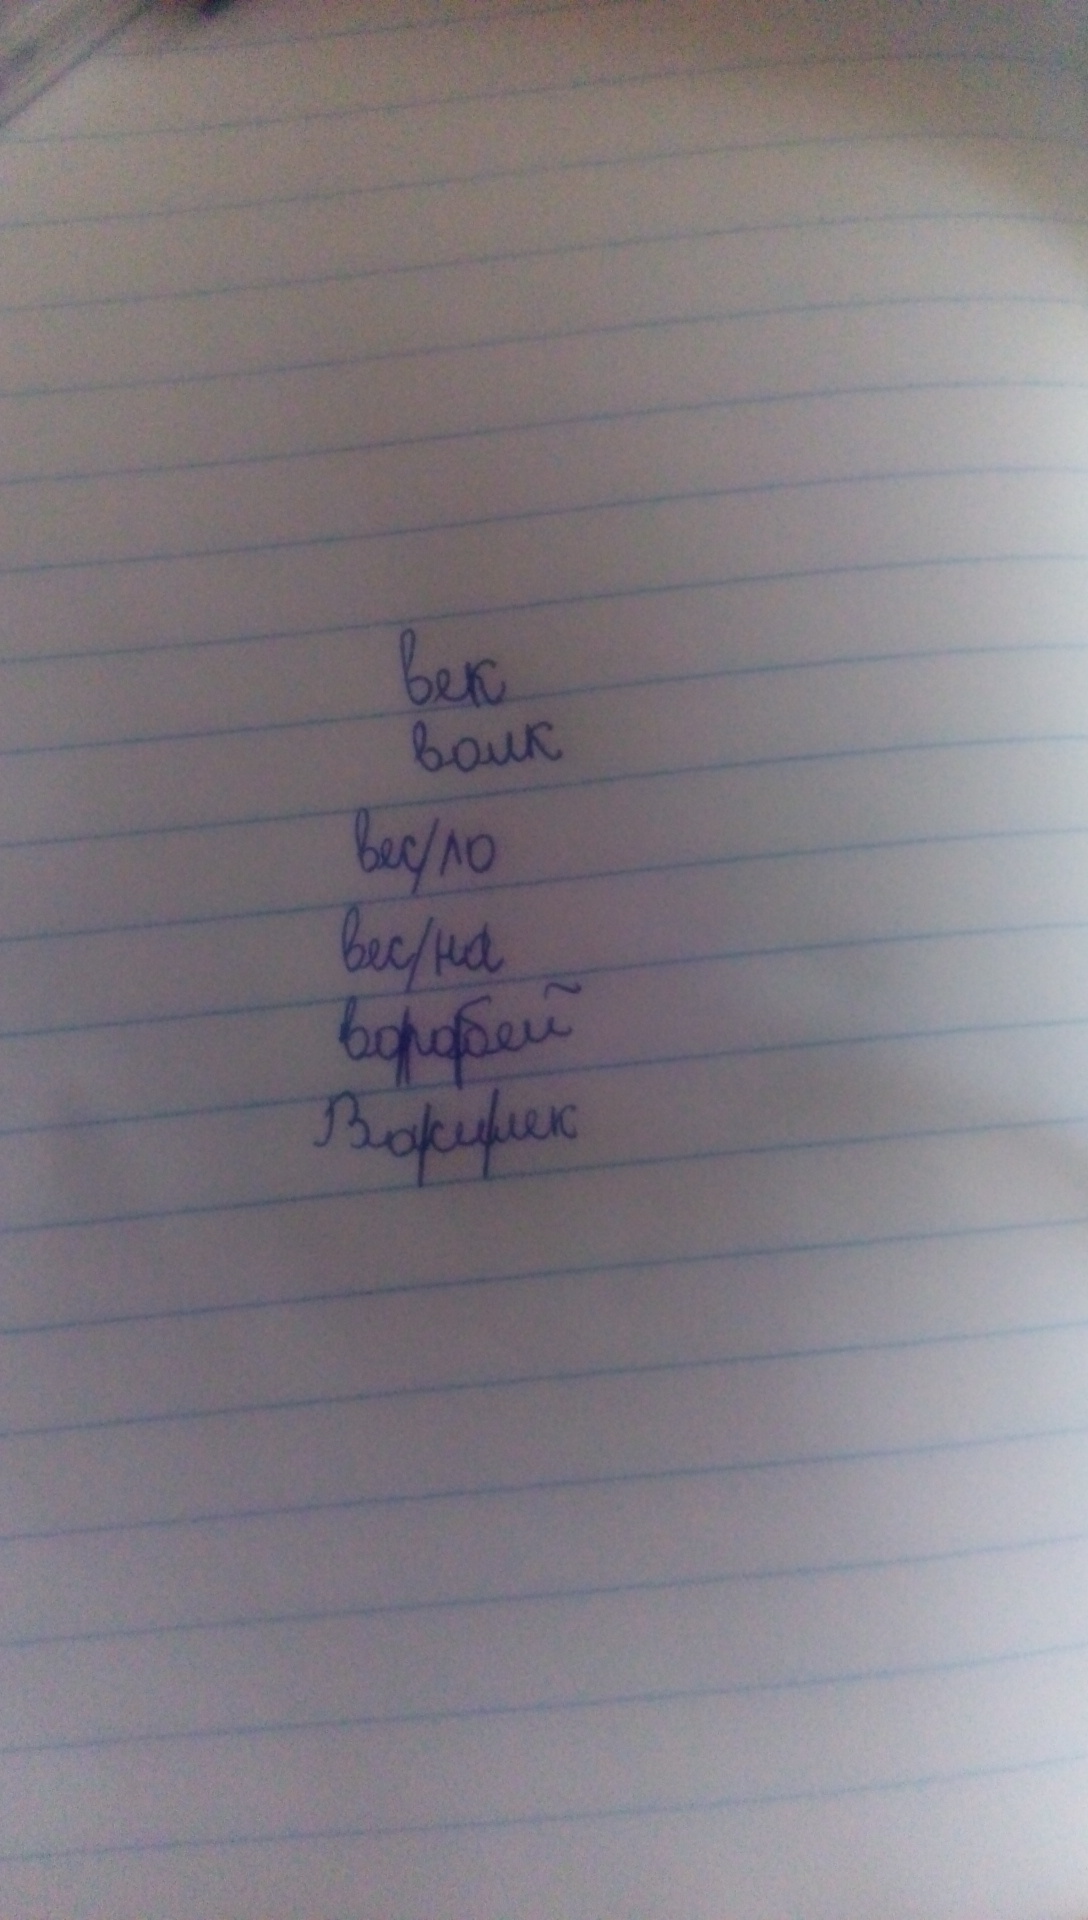 век
волк
вес/ло
вес/на
во/ро/бей
Ва/си/лек